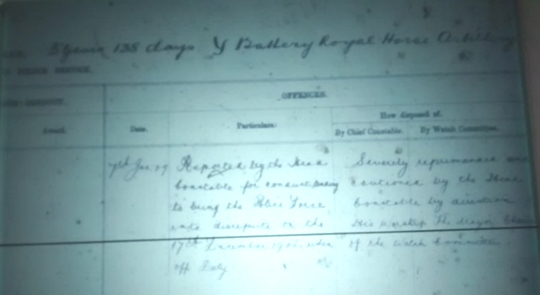 5 years 138 days Y Battery Royal Horse Artillery
POLICE SERVICE.
OFFENCES.
How disposed of.
Date. Particulars. By Chief Constable. By Watch Committee.
7th Jan 09 Reported by the Head Severely reprimanded and
Constable for conduct cautioned by the Head
to bring the Police Force Constable by direction
into disrepute on the His Worship the Mayor
17th December when of the Watch Committee
off Duty